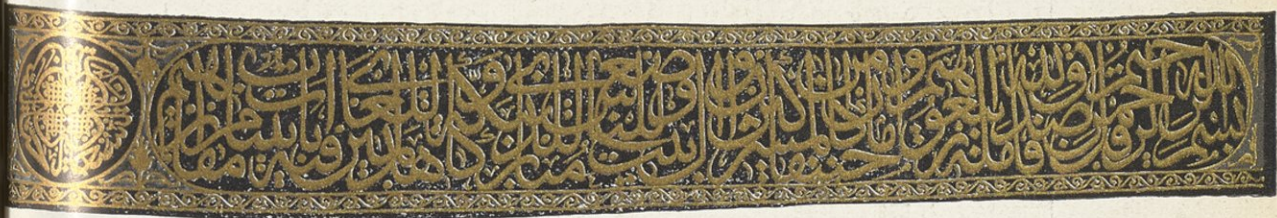 بسم الله الرحمن الرحيم قل صدق الله فاتبعوا ملة ابراهيم حنيفا وما كان من المشركين ان اول بيت وضع للناس للذي ببكة مباركا وهدى للعالمين فيه آيات بينات مقام ابراهيم